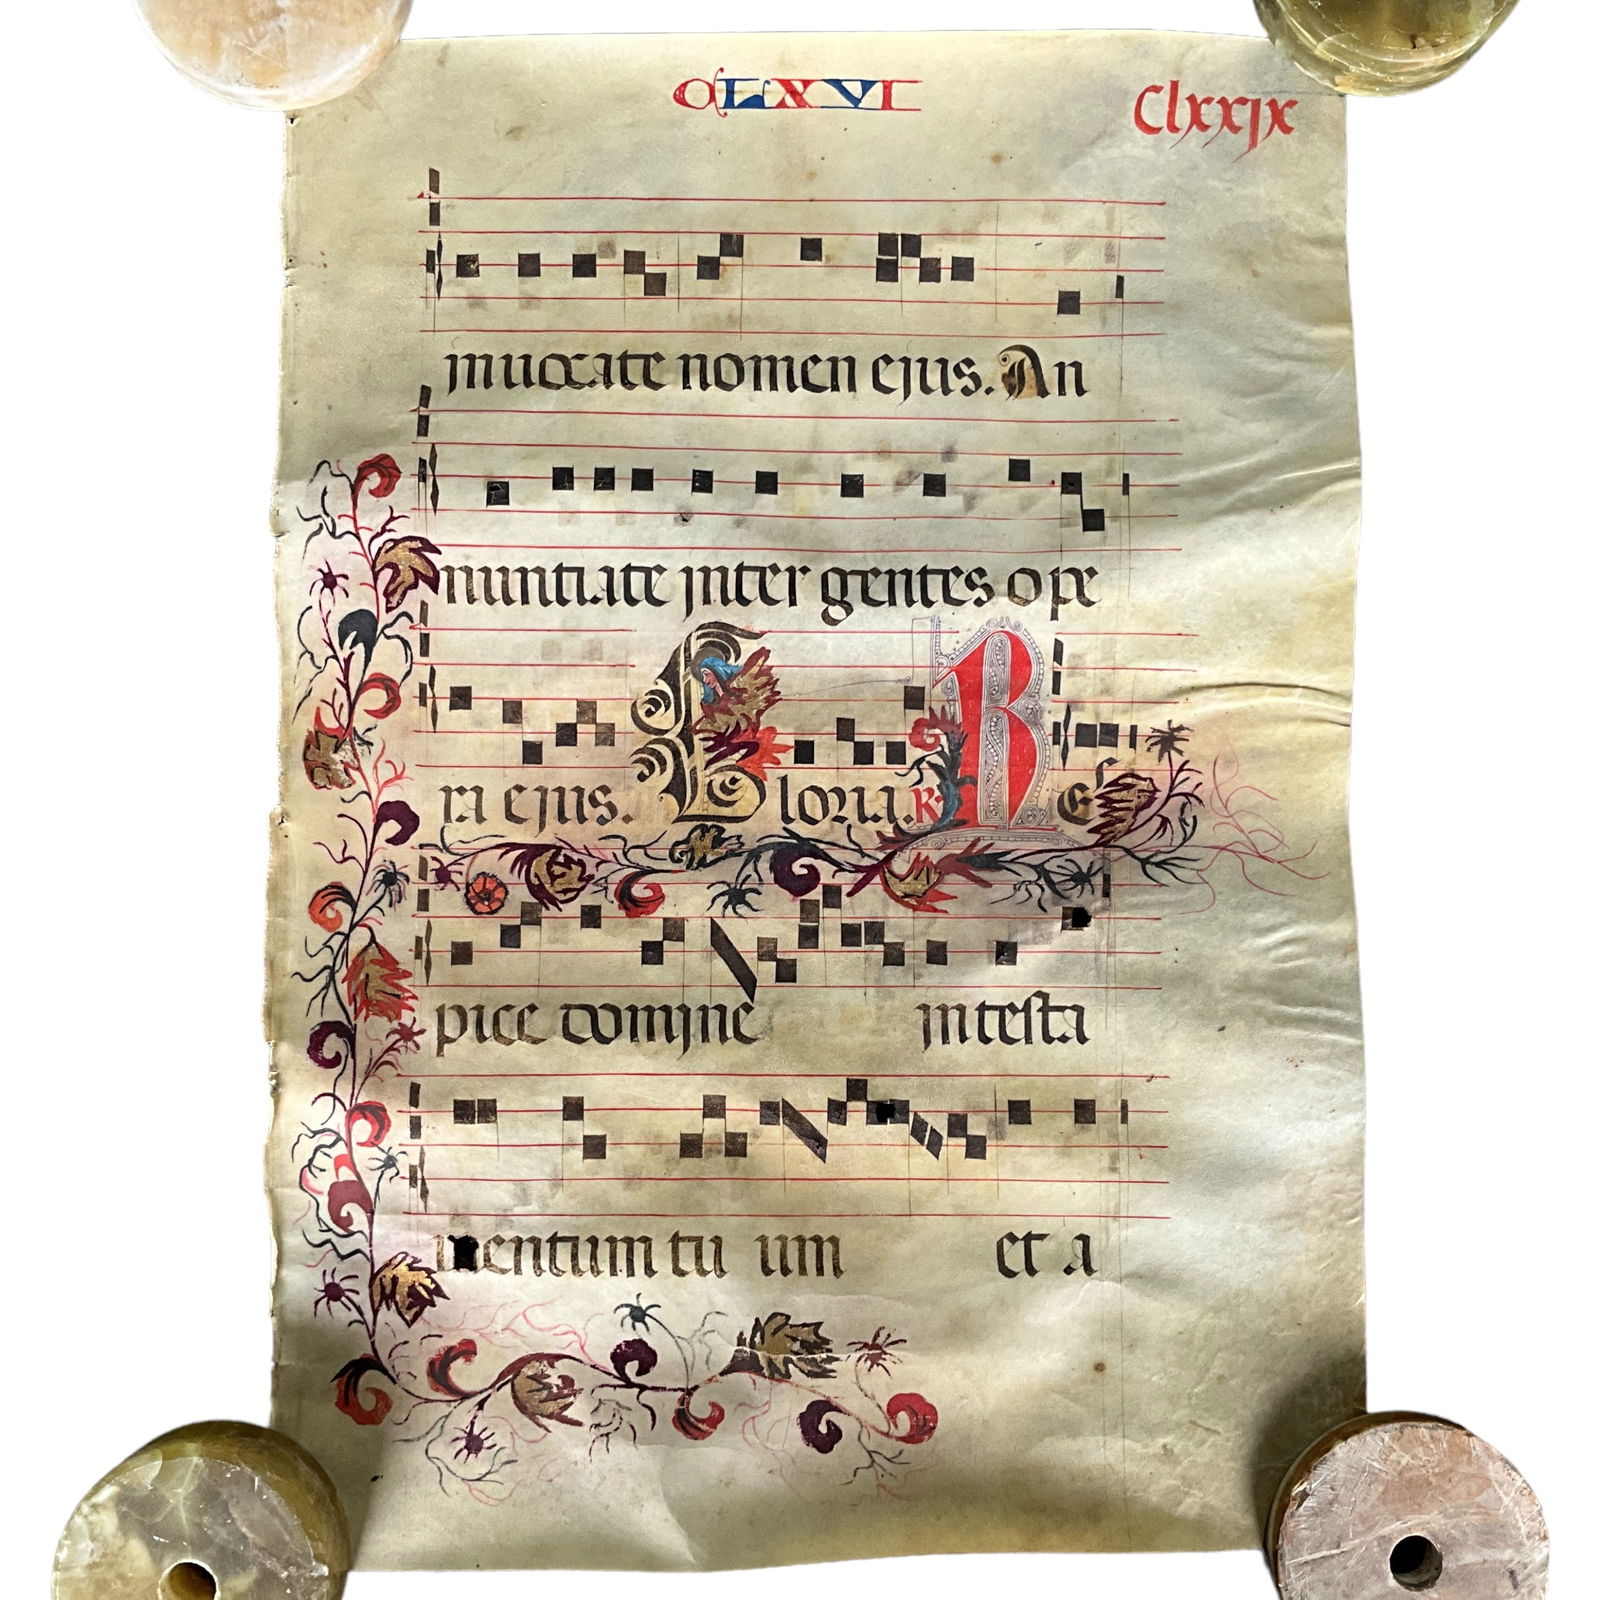 CLXVI
Clxxjx
jnuocate nomen ejus. An
nuntiate jnter gentes ope
ra ejus. Gloria. R. Res
pice domjne jn testa
mentum tu um et a